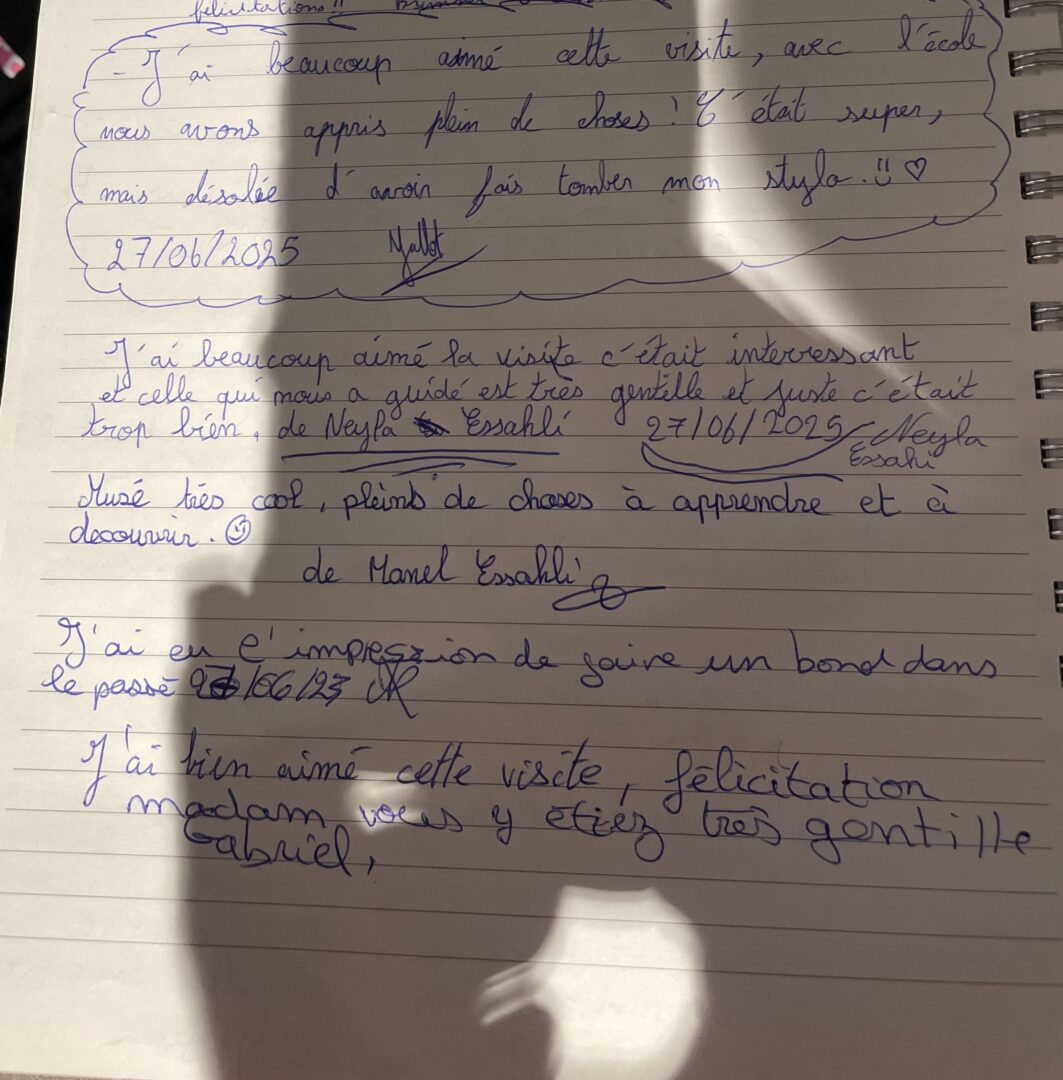 félicitations !!
- J'ai beaucoup aimé cette visite, avec l'école
nous avons appris plein de choses ! C'était super,
mais désolée d'avoir fais tomber mon stylo. ♡
27/06/2025
J'ai beaucoup aimé la visite c'était interressant
et celle qui nous a guidé est très gentille et juste c'était
trop bien, de Neyla Essahli 27/06/2025 Neyla
Essahi
Musé très cool, pleins de choses à apprendre et à
decouvrir.
de Manel Essahli
J'ai eu l'impression de faire un bond dans
le passé
J'ai bien aimé cette visite, félicitation
madam vous y étiez très gentille
Gabriel,